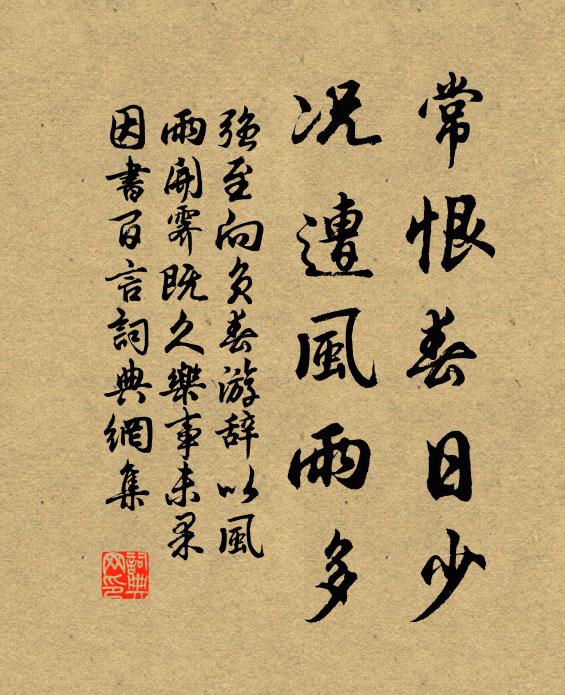 常恨春日少
况遭風雨多
强至向负春游辞以風
雨開霁既久樂事未果
因書百言詞典網集
詞典網印